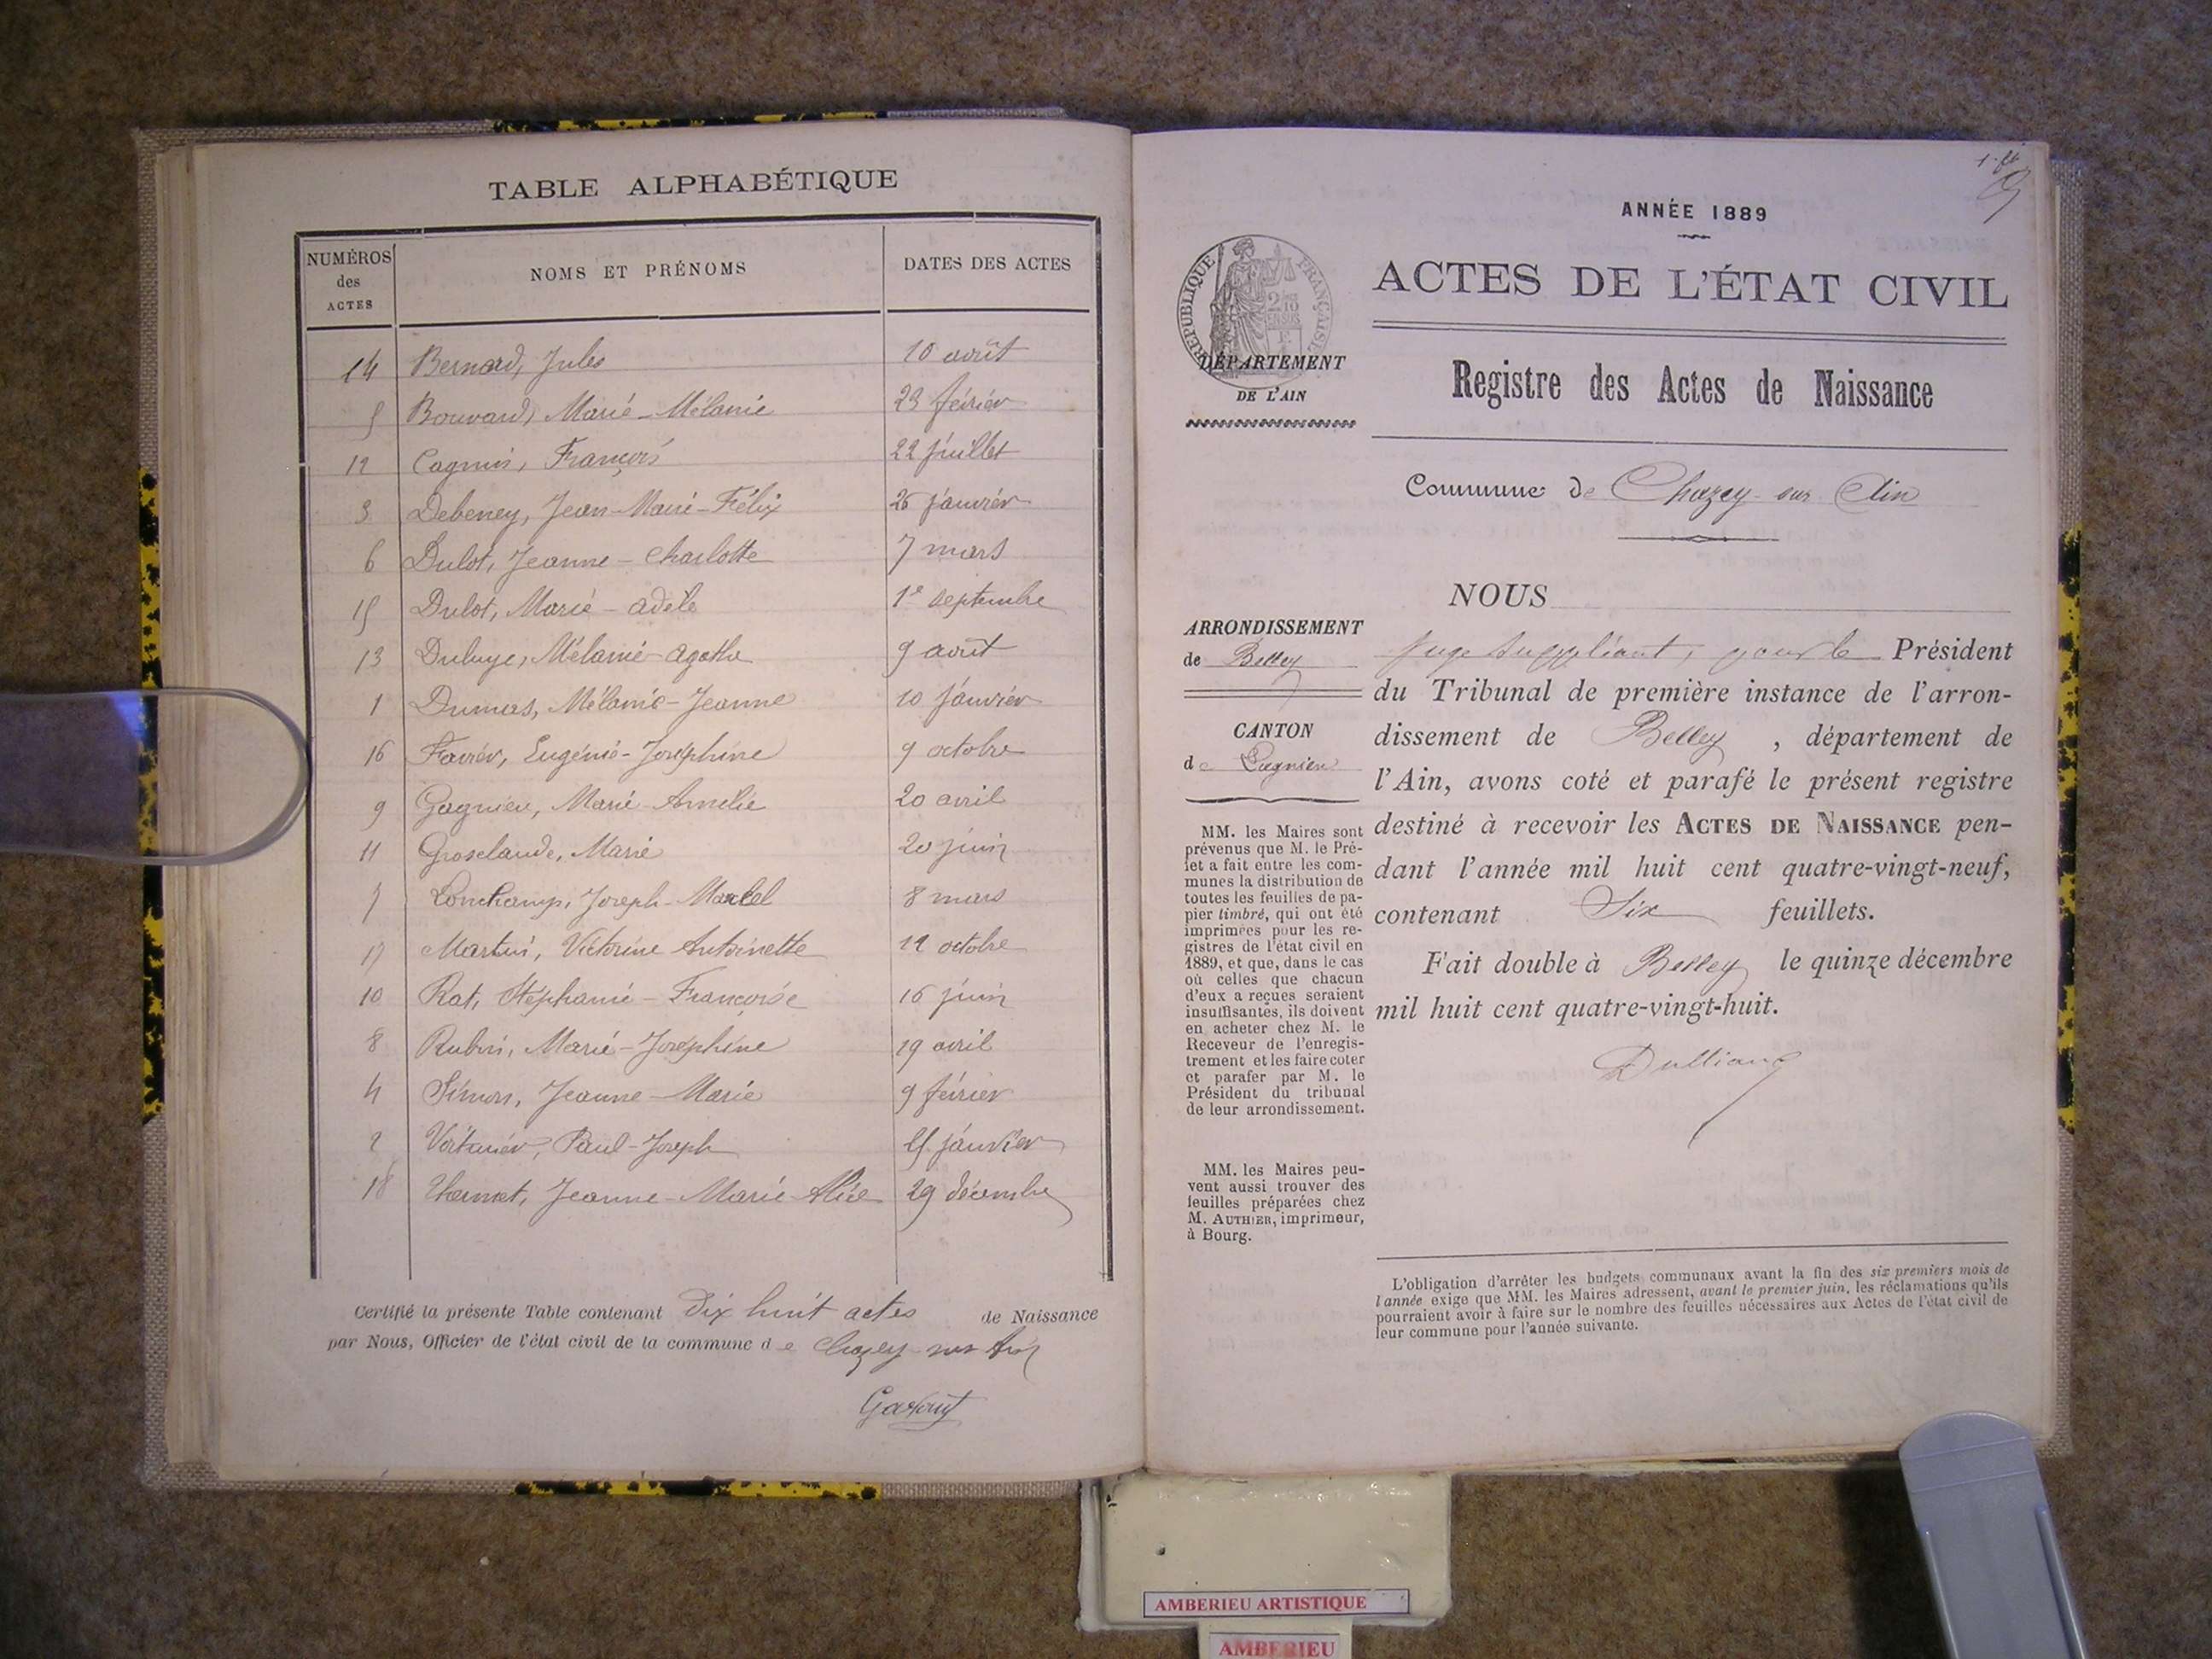 TABLE ALPHABÉTIQUE
NUMÉROS des ACTES
NOMS ET PRÉNOMS
DATES DES ACTES
14 Bernard, Jules 10 août
5 Bouvard, Marie-Mélanie 23 février
12 François 22 juillet
3 Debeney, Jean-Marie-Félix 26 janvier
6 Dulot, Jeanne-Charlotte 7 mars
15 Dulot, Marie-Adèle 1e septembre
13 Mélanie-Agathe 9 août
1 Dumas, Mélanie-Jeanne 10 janvier
16 Favier, Eugénie-Joséphine 9 octobre
9 Gagnieu, Marie-Amélie 20 avril
11 Groselaude, Marie 20 juin
7 Lonchamp, Joseph-Marcel 8 mars
17 Martin, Victorine Antoinette 12 octobre
10 Rat, Stéphanie-Françoise 16 juin
8 Rubin, Marie-Joséphine 19 avril
4 Simon, Jeanne-Marie 9 février
2 Paul-Joseph 25 janvier
18 Jeanne-Marie-Alice 29 décembre
Certifié la présente Table contenant Dix huit actes de Naissance
par Nous, Officier de l'état civil de la commune de Chazey-sur-Ain
ANNÉE 1889
RÉPUBLIQUE FRANÇAISE
ACTES DE L'ÉTAT CIVIL
DÉPARTEMENT
DE L'AIN
Registre des Actes de Naissance
Commune de Chazey-sur-Ain
NOUS
ARRONDISSEMENT
de Belley
CANTON
de Lagnieu
juge suppléant, pour le Président
du Tribunal de première instance de l'arron-
dissement de Belley, département de
l'Ain, avons coté et parafé le présent registre
destiné à recevoir les ACTES DE NAISSANCE pen-
dant l'année mil huit cent quatre-vingt-neuf,
contenant Six feuillets.
Fait double à Belley le quinze décembre
mil huit cent quatre-vingt-huit.
MM. les Maires sont
prévenus que M. le Pré-
fet a fait entre les com-
munes la distribution de
toutes les feuilles de pa-
pier timbré, qui ont été
imprimées pour les re-
gistres de l'état civil en
1889, et que, dans le cas
où celles que chacun
d'eux a reçues seraient
insuffisantes, ils doivent
en acheter chez M. le
Receveur de l'enregis-
trement et les faire coter
et parafer par M. le
Président du tribunal
de leur arrondissement.
MM. les Maires peu-
vent aussi trouver des
feuilles préparées chez
M. AUTHIER, imprimeur,
à Bourg.
L'obligation d'arrêter les budgets communaux avant la fin des six premiers mois de
l'année exige que MM. les Maires adressent, avant le premier juin, les réclamations qu'ils
pourraient avoir à faire sur le nombre des feuilles nécessaires aux Actes de l'état civil de
leur commune pour l'année suivante.
AMBERIEU ARTISTIQUE
AMBERIEU